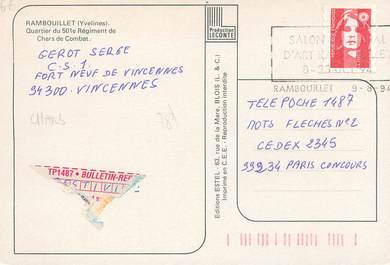 RAMBOUILLET (Yvelines).
Quartier du 501e Régiment de
Chars de Combat.
GEROT SERGE
C.S.1.
FORT NEUF DE VINCENNES
94300 - VINCENNES
CHARS
TP1487 • BULLETIN-RE
Production
LECONTE
Editions ESTEL - 63, rue de la Mare, BLOIS (L. & C.)
Imprimé en C.E.E. - Reproduction interdite
SALON
D'ART
8-23 OCT 94
RAMBOUILLET 9-8-94
TELE POCHE 1487
MOTS FLECHES Nº2
CEDEX 2345
99234 PARIS CONCOURS